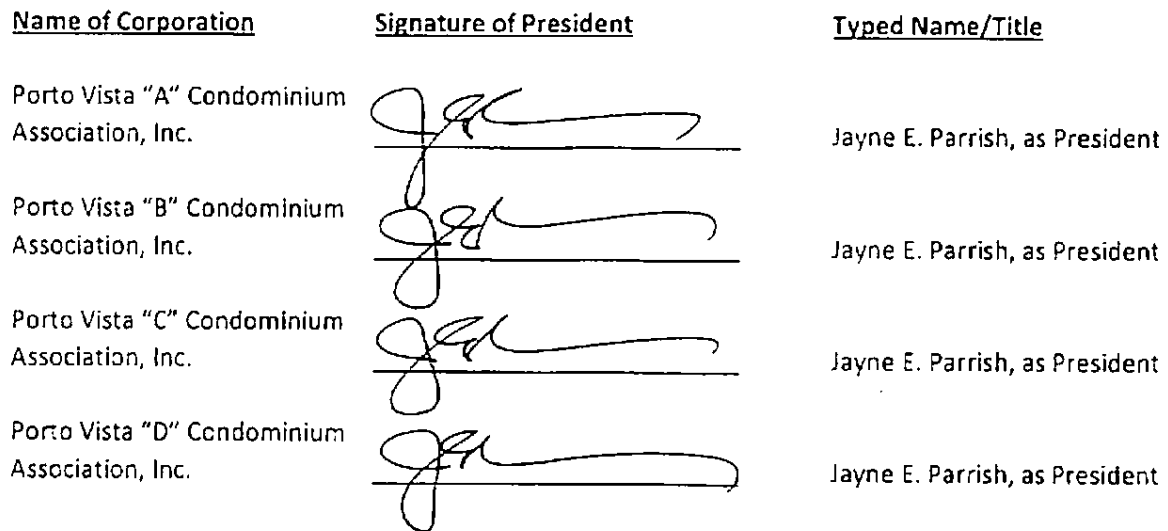 Name of Corporation Signature of President Typed Name/Title
Porto Vista "A" Condominium
Association, Inc. Jayne E. Parrish, as President
Porto Vista "B" Condominium
Association, Inc. Jayne E. Parrish, as President
Porto Vista "C" Condominium
Association, Inc. Jayne E. Parrish, as President
Porto Vista "D" Condominium
Association, Inc. Jayne E. Parrish, as President